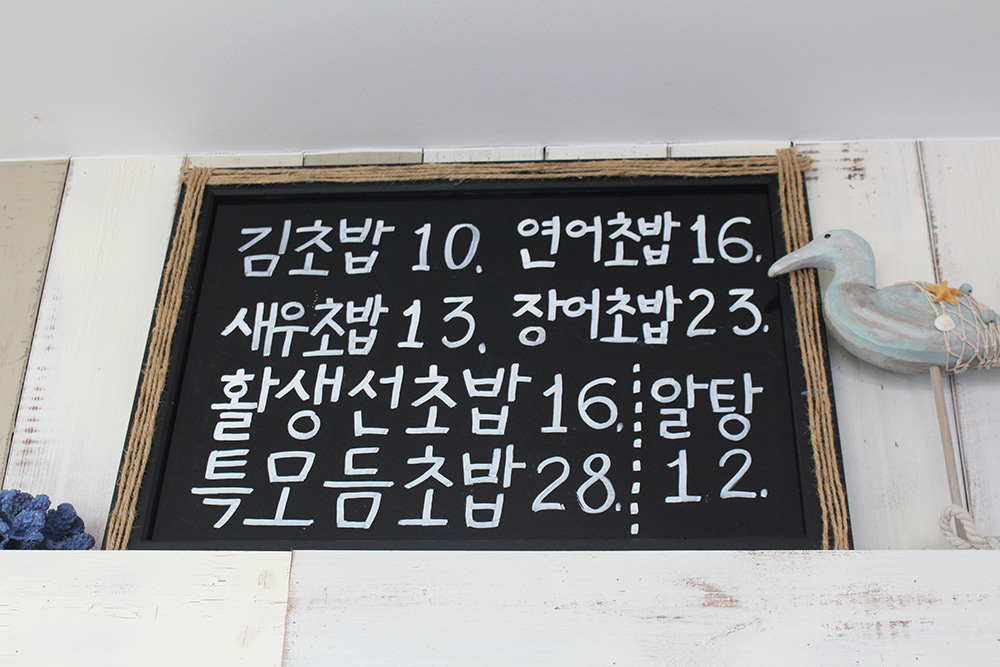 김초밥 10. 연어초밥 16.
새우초밥 13. 장어초밥 23.
활생선초밥 16. 알탕
특모듬초밥 28. 12.